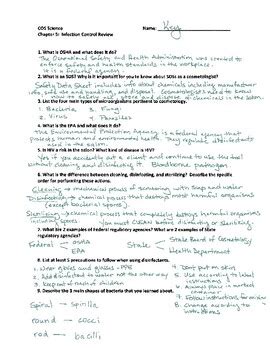 COS Science Name: Key
Chapter 5: Infection Control Review
1. What is OSHA and what does it do?
The Occupational Safety and Health Administration was created to
enforce safety and health standards in the workplace.
it is a federal agency.
2. What is an SDS? Why is it important for you to know about SDSs as a cosmetologist?
Safety Data Sheet includes info about chemicals including manufacturer
info, safe use and handling, and disposal. Cosmetologists need to
know in case of chemicals in the salon.
3. List the four main types of microorganisms pertinent to cosmetology.
1. Bacteria 3. Fungi
2. Virus 4. Parasites
4. What is the EPA and what does it do?
The Environmental Protection Agency is a federal agency that
protects human and environmental health. They regulate disinfectants
used in the salon.
5. Is HIV a risk in the salon? What kind of disease is HIV?
Yes if you accidentally cut a client and continue to use the tool
without cleaning and disinfecting it. Bloodborne pathogen.
6. What is the difference between cleaning, disinfecting, and sterilizing? Describe the specific
order for performing these actions.
Cleaning → mechanical process of removing with soap and water
Disinfecting → chemical process that destroys most harmful organisms
(except bacterial spores)
Sterilizing → process that completely destroys harmful organisms
including spores. You must CLEAN before disinfecting or sterilizing
7. What are 2 examples of Federal regulatory agencies? What are 2 examples of State
regulatory agencies?
Federal OSHA State State Board of Cosmetology
EPA Health Department
8. List at least 5 precautions to follow when using disinfectants.
1. Wear gloves and glasses - PPE 4. Don't put on skin
2. Add disinfectant to water not the other way 5. Use according to label
3. Keep out of reach of children instructions
6. Always place in marked container
7. Follow instructions for mixing
8. Change according to
9. Describe the 3 main shapes of bacteria that you learned about.
Spiral → spirilla
round → cocci
rod → bacilli